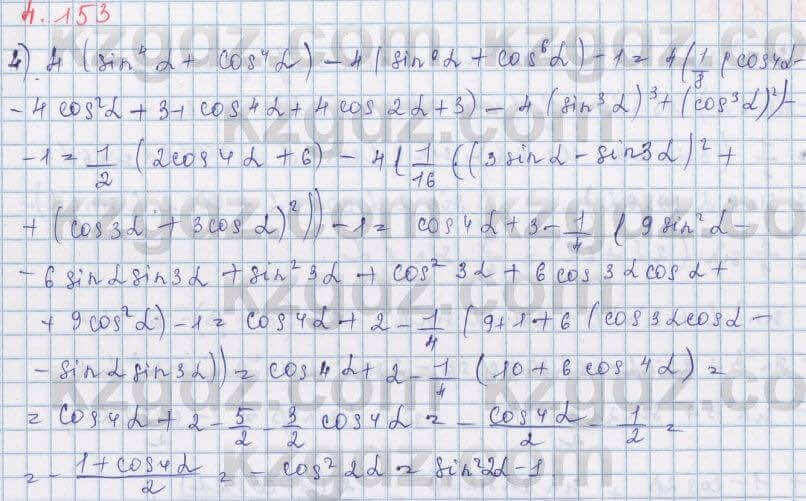 4.153
4). 4 (sin⁴α + cos⁴α) - 4 (sin⁶α + cos⁶α) - 1 = 4 (1/8 (cos4α -
- 4 cos²α + 3 + cos 4α + 4 cos 2α + 3) - 4 (sin³α)³ + (cos³α)²) -
- 1 = 1/2 (2cos 4α + 6) - 4 (1/16 ((3 sinα - sin3α)² +
+ (cos3α + 3cosα)²)) - 1 = cos4α + 3 - 1/4 (9 sin²α -
- 6 sinα sin3α + sin²3α + cos²3α + 6 cos3α cosα +
+ 9 cos²α) - 1 = cos4α + 2 - 1/4 (9 + 1 + 6 (cos3α cosα -
- sinα sin3α)) = cos4α + 2 - 1/4 (10 + 6 cos 4α) =
= cos4α + 2 - 5/2 - 3/2 cos4α = - cos4α/2 - 1/2 =
= - (1 + cos4α)/2 = - cos²2α = sin²2α - 1
kzgdz.com